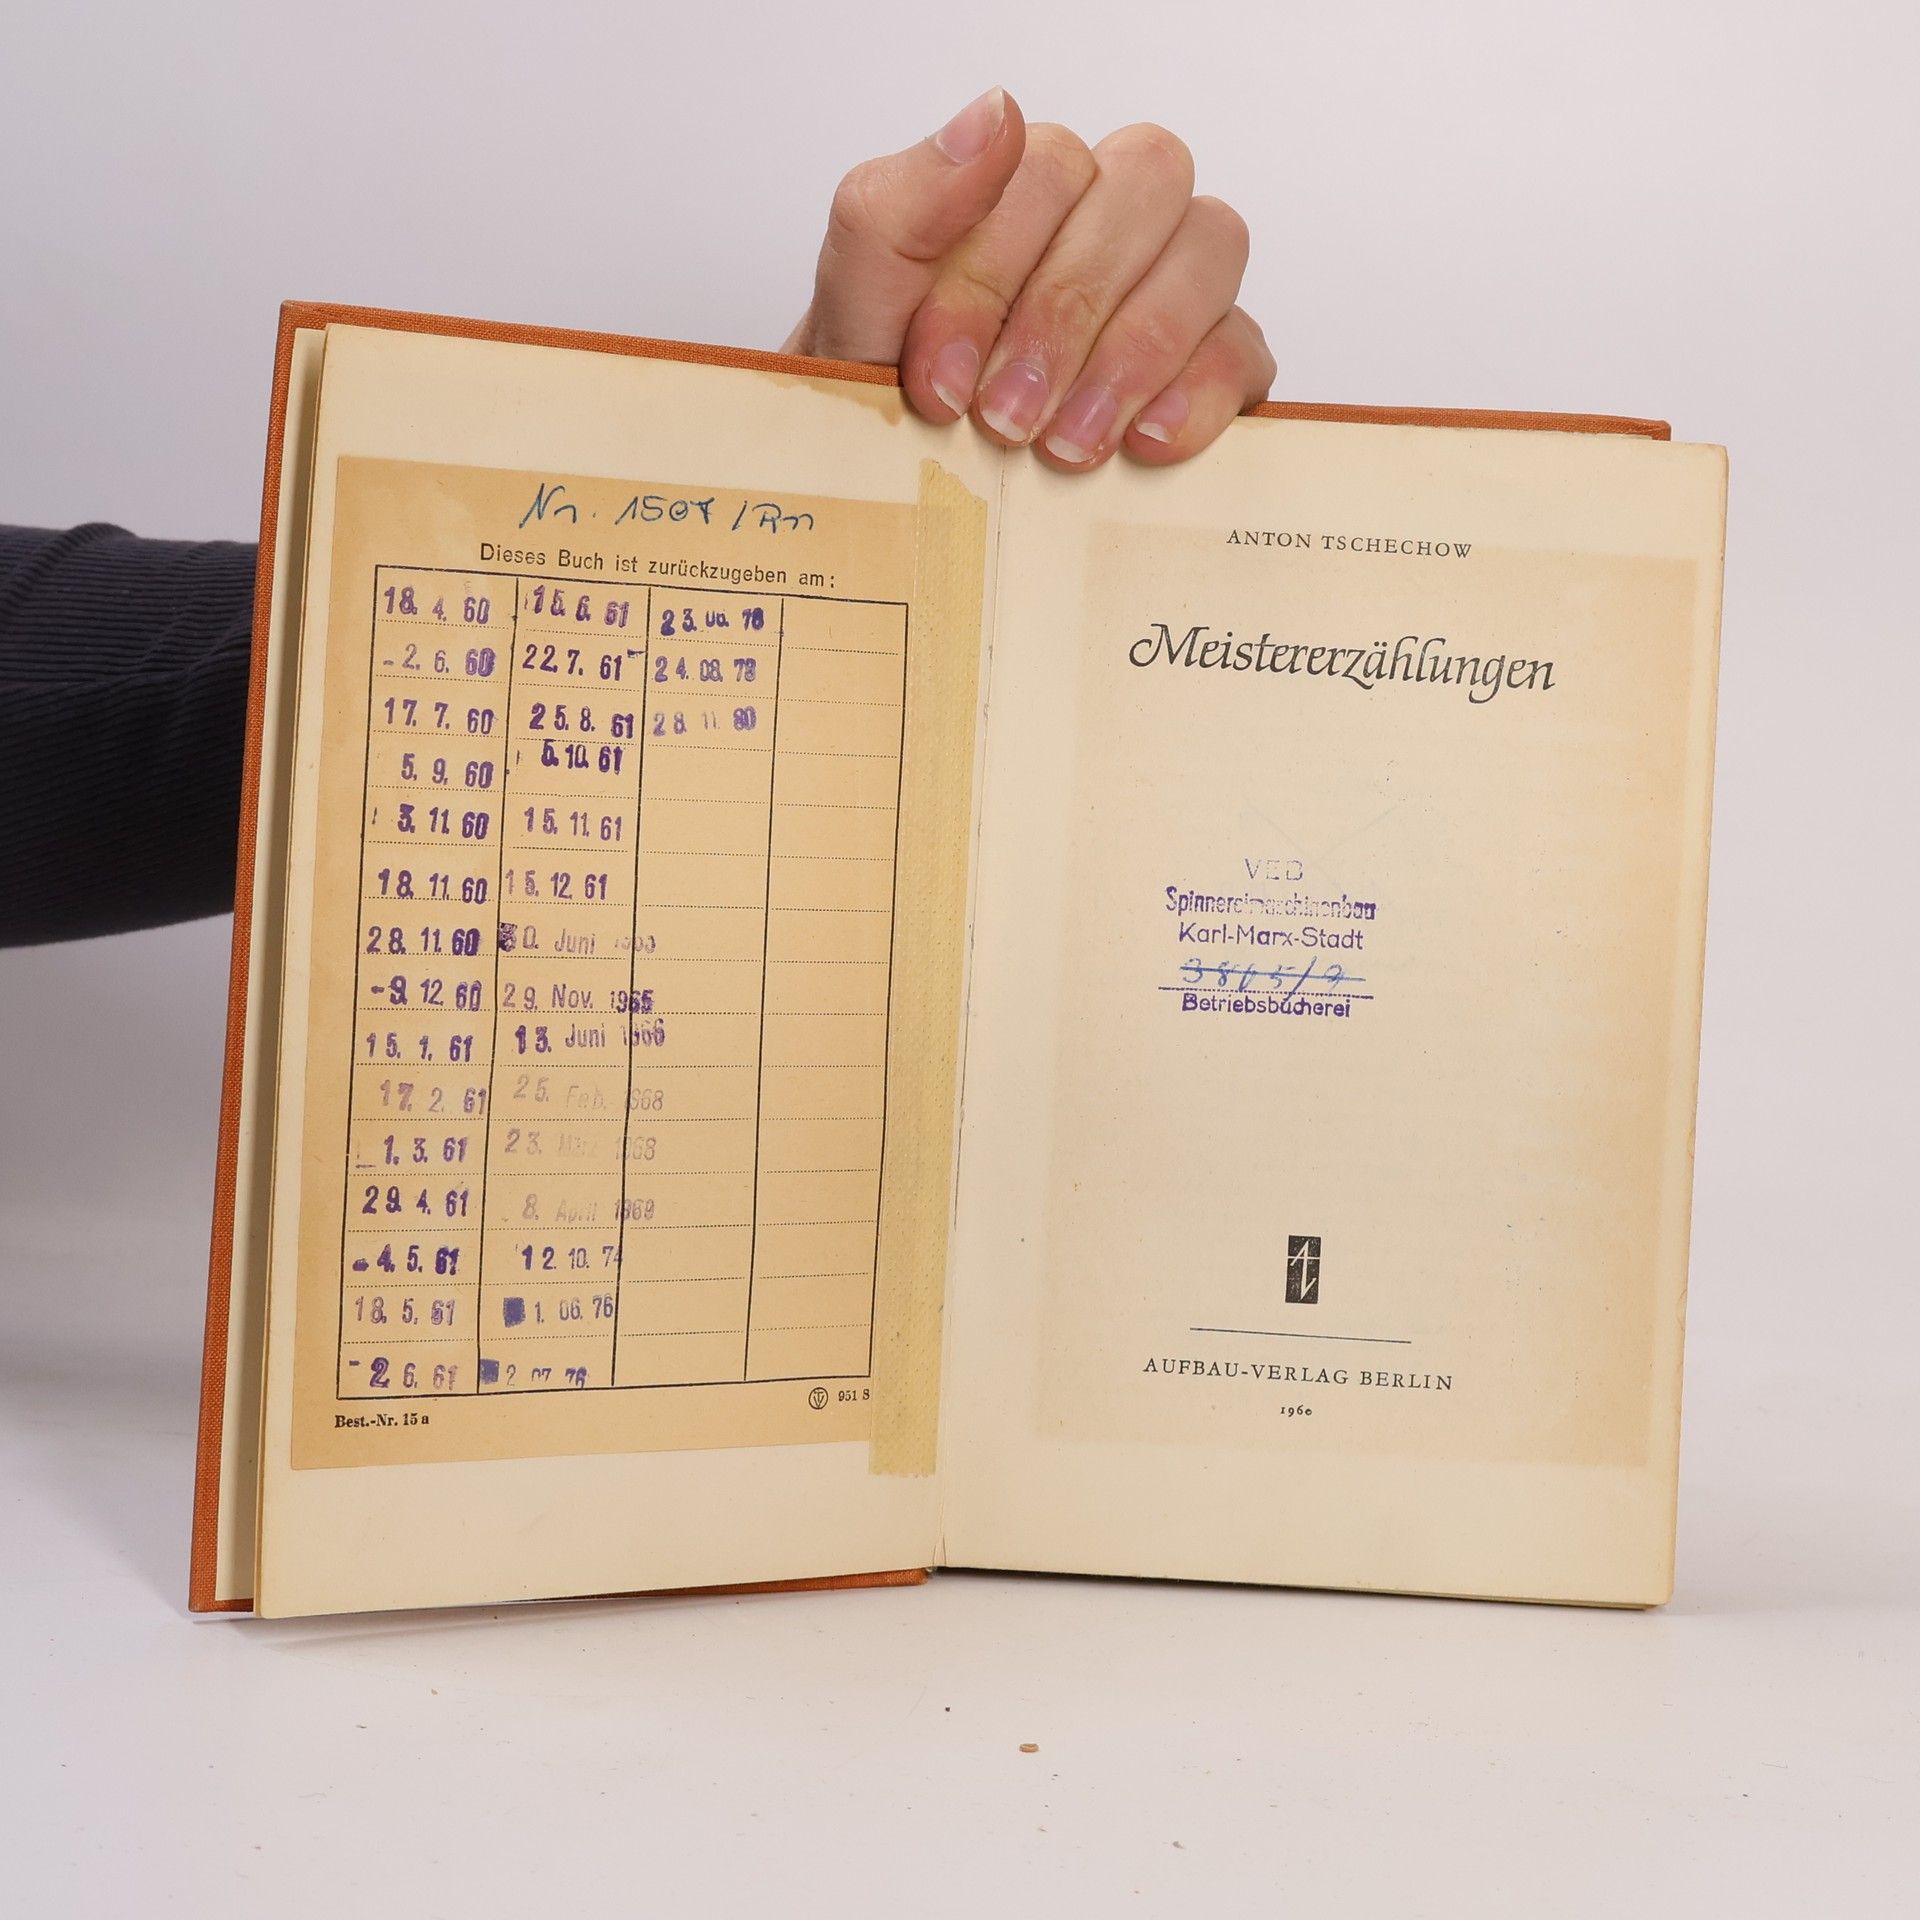 Nr. 1507 / Rn
Dieses Buch ist zurückzugeben am:
18. 4. 60
- 2. 6. 60
17. 7. 60
5. 9. 60
3. 11. 60
18. 11. 60
28. 11. 60
- 9. 12. 60
15. 1. 61
17. 2. 61
1. 3. 61
29. 4. 61
- 4. 5. 61
18. 5. 61
- 2. 6. 61
15. 6. 61
22. 7. 61
25. 8. 61
5. 10. 61
15. 11. 61
15. 12. 61
30. Juni
29. Nov. 1965
13. Juni 1966
25. Feb. 1968
23. März 1968
8. April 1969
12. 10. 74
1. 06. 76
2 07. 76
23. 06. 78
24. 08. 79
28 11 80
Best.-Nr. 15 a
951 S
ANTON TSCHECHOW
Meistererzählungen
VEB
Spinnereimaschinenbau
Karl-Marx-Stadt
Betriebsbücherei
AUFBAU-VERLAG BERLIN
1960